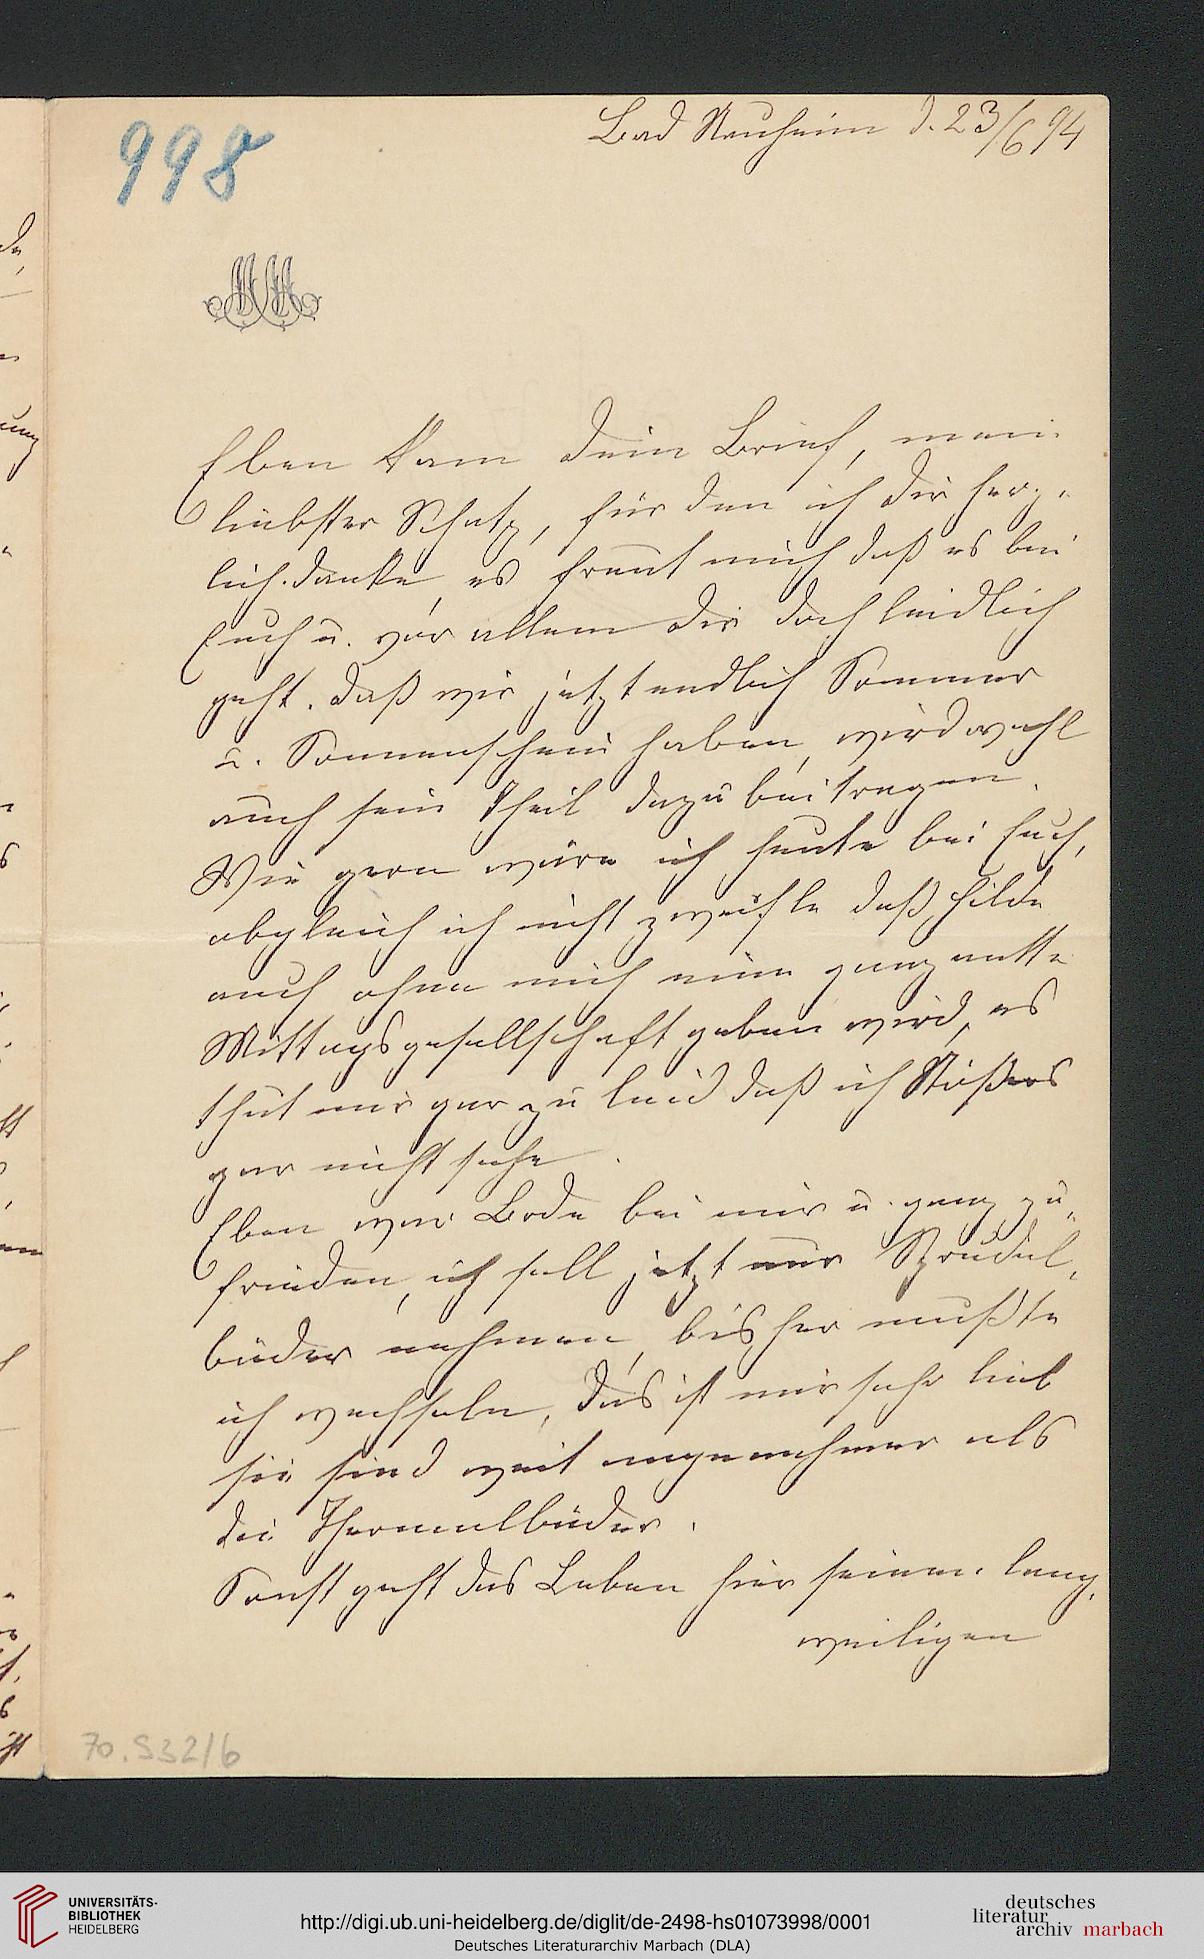 998
Bad Nauheim d. 23/6 94
Eben kam Dein Brief, mein
liebster Schatz, für den ich Dir herz-
lich danke, es freut mich daß es bei
Euch u. vor allem Dir doch leidlich
geht. Daß wir jetzt endlich Sommer
u. Sonnenschein haben, wird wohl
auch sein Theil dazu beitragen.
Wie gern wäre ich heute bei Euch,
obgleich ich nicht zweifle daß Hilde
auch ohne mich eine ganz nette
Mittagsgesellschaft geben wird, es
thut mir gar zu leid daß ich
gar nicht sehe.
Eben war Bode bei mir u. ganz zu-
frieden, ich soll jetzt nur Sprudel-
bäder nehmen, bisher mußte
ich wechseln, das ist mir sehr lieb
sie sind weit angenehmer als
die Thermalbäder.
Sonst geht das Leben hier seinen lang-
weiligen
70.532/6
UNIVERSITÄTS-
BIBLIOTHEK
HEIDELBERG
http://digi.ub.uni-heidelberg.de/diglit/de-2498-hs01073998/0001
Deutsches Literaturarchiv Marbach (DLA)
deutsches
literatur
archiv marbach